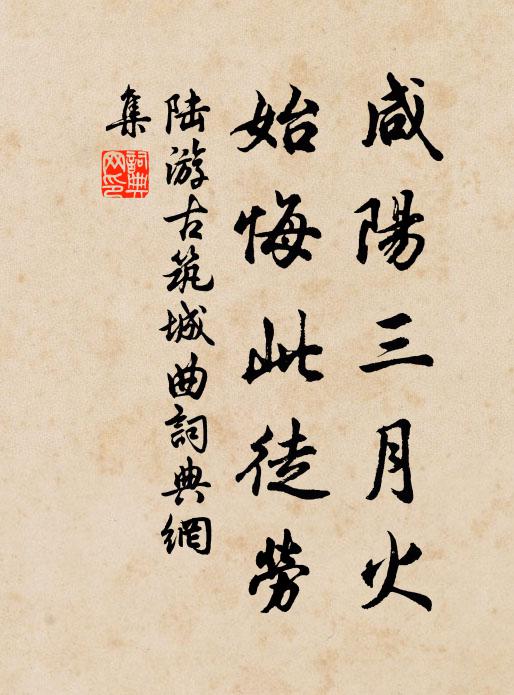 咸陽三月火
始悔此徒勞
陆游古筑城曲詞典網
集
詞典
网印